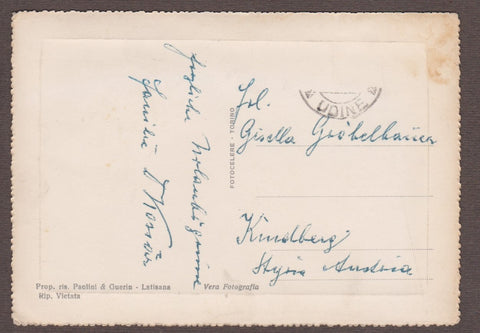 herzliche Urlaubsgrüsse
Familie
Frl.
Gisella Gröbelbauer
Kindberg
Styria Austria
UDINE
FOTOCELERE - TORINO
Prop. ris. Paolini & Guerin - Latisana
Rip. Vietata
Vera Fotografia